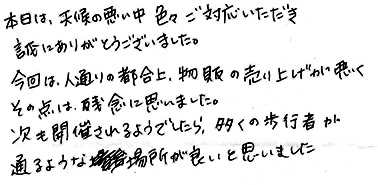 本日は、天候の悪い中 色々ご対応いただき
誠にありがとうございました。
今回は、人通りの都合上、物販の売り上げがに悪く
その点は、残念に思いました。
次も開催されるようでしたら、多くの歩行者が
通るような場所が良いと思いました